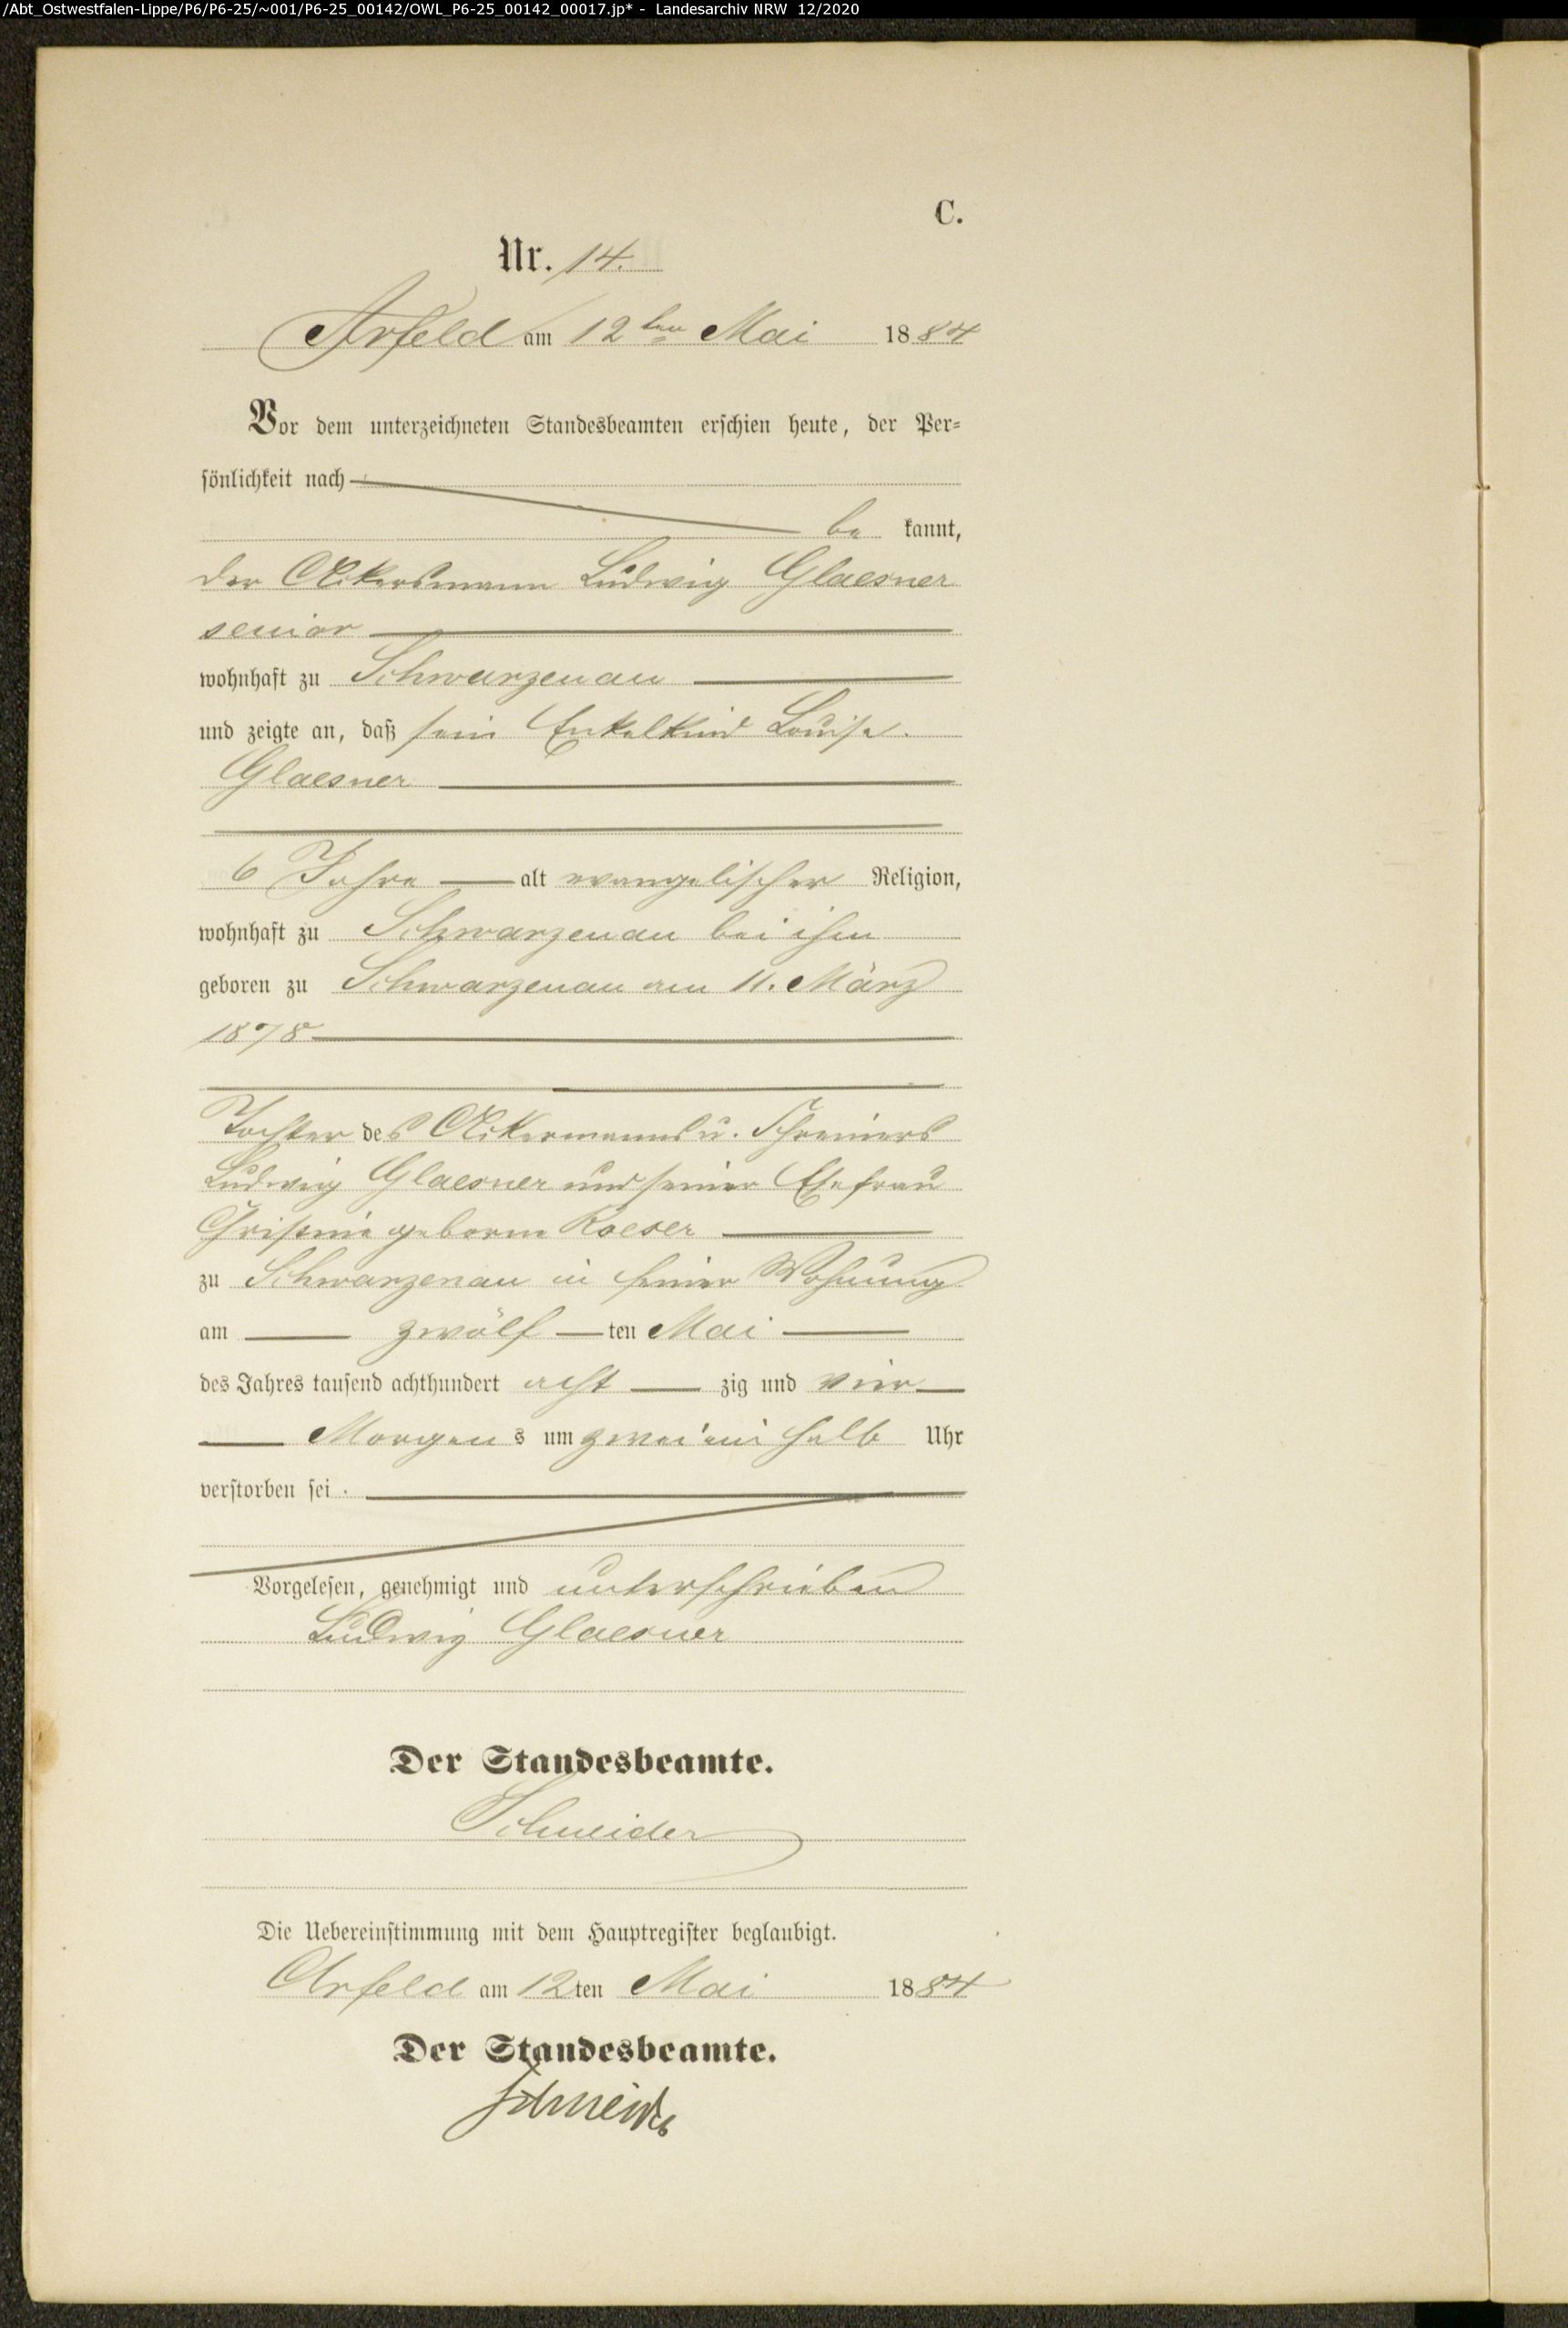 /Abt_Ostwestfalen-Lippe/P6/P6-25/~001/P6-25_00142/OWL_P6-25_00142_00017.jp* - Landesarchiv NRW 12/2020
C.
Nr. 14.
Arfeld am 12ten Mai 1884
Vor dem unterzeichneten Standesbeamten erschien heute, der Per-
sönlichkeit nach
be kannt,
der Ackersmann Ludwig Glaesner
senior
wohnhaft zu Schwarzenau
und zeigte an, daß sein Enkelkind Louise
Glaesner
6 Jahre alt evangelischer Religion,
wohnhaft zu Schwarzenau bei ihm
geboren zu Schwarzenau am 11. März
1878
Tochter des Ackermanns u. Schreiners
Ludwig Glaesner und seiner Ehefrau
geborne Roeser
zu Schwarzenau in seiner Wohnung
am zwölf ten Mai
des Jahres tausend achthundert acht zig und vier
Morgens um zwei ein halb Uhr
verstorben sei.
Vorgelesen, genehmigt und unterschrieben
Ludwig Glaesner
Der Standesbeamte.
Schneider
Die Uebereinstimmung mit dem Hauptregister beglaubigt.
Arfeld am 12ten Mai 1884
Der Standesbeamte.
Schneider